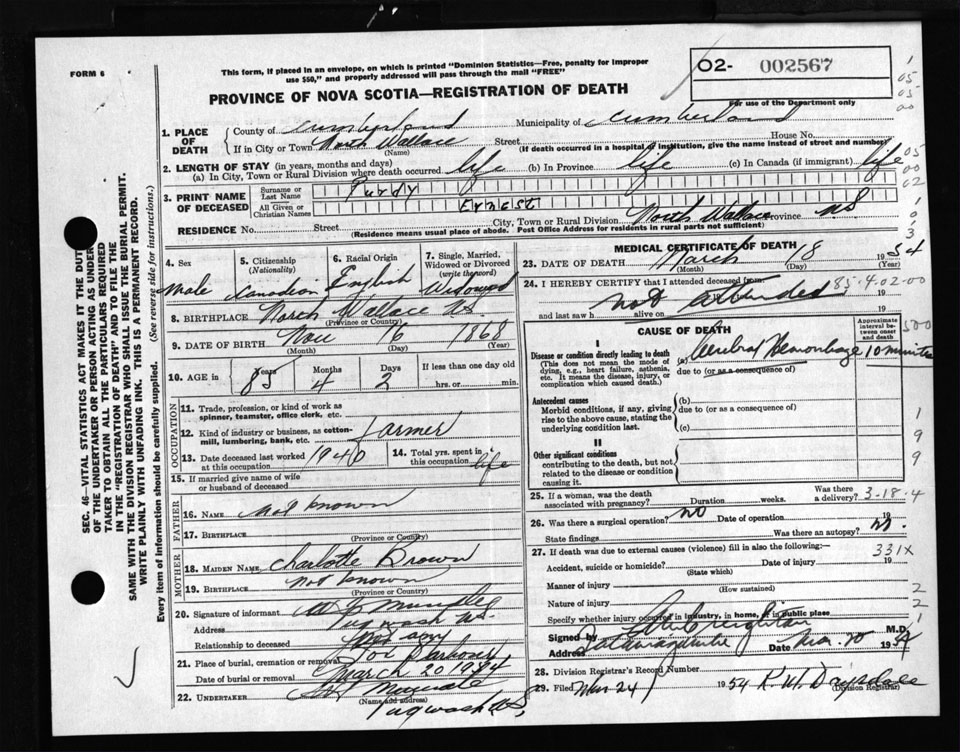 FORM 6
This form, if placed in an envelope, on which is printed "Dominion Statistics—Free, penalty for improper
use $50," and properly addressed will pass through the mail "FREE"
PROVINCE OF NOVA SCOTIA—REGISTRATION OF DEATH
O2- 002567
For use of the Department only
1. PLACE OF DEATH
County of Cumberland Municipality of Cumberland
If in City or Town North Wallace Street House No.
(Name) (If death occurred in a hospital or institution, give the name instead of street and number)
2. LENGTH OF STAY (in years, months and days)
(a) In City, Town or Rural Division where death occurred life (b) In Province life (c) In Canada (if immigrant) life
3. PRINT NAME OF DECEASED
Surname or Last Name Purdy
All Given or Christian Names Ernest
RESIDENCE No. Street City, Town or Rural Division North Wallace Province N.S.
(Residence means usual place of abode. Post Office Address for residents in rural parts not sufficient)
4. Sex Male
5. Citizenship (Nationality) Canadian
6. Racial Origin English
7. Single, Married, Widowed or Divorced (write the word) Widowed
8. BIRTHPLACE North Wallace N.S.
(Province or Country)
9. DATE OF BIRTH Nov 16 1868
(Month) (Day) (Year)
10. AGE in Years 85 Months 4 Days 2 If less than one day old hrs. or min.
OCCUPATION
11. Trade, profession, or kind of work as spinner, teamster, office clerk, etc.
12. Kind of industry or business, as cotton-mill, lumbering, bank, etc. Farmer
13. Date deceased last worked at this occupation 1940
14. Total yrs. spent in this occupation life
15. If married give name of wife or husband of deceased
FATHER
16. NAME Not known
17. BIRTHPLACE
(Province or Country)
MOTHER
18. MAIDEN NAME Charlotte Brown
19. BIRTHPLACE not known
(Province or Country)
20. Signature of informant
Address Pugwash N.S.
Relationship to deceased
21. Place of burial, cremation or removal
Date of burial or removal March 20 1954
22. UNDERTAKER
(Name and address)
Pugwash N.S.
MEDICAL CERTIFICATE OF DEATH
23. DATE OF DEATH March 18 1954
(Month) (Day)
24. I HEREBY CERTIFY that I attended deceased from
not attended 85-4-02-00
and last saw h alive on 19
CAUSE OF DEATH
Approximate interval between onset and death
I
Disease or condition directly leading to death
(This does not mean the mode of dying, e.g., heart failure, asthenia, etc. It means the disease, injury, or complication which caused death.)
(a) Cerebral Hemorrhage 10 minutes
due to (or as a consequence of)
Antecedent causes
Morbid conditions, if any, giving rise to the above cause, stating the underlying condition last.
(b)
due to (or as a consequence of)
(c)
II
Other significant conditions
contributing to the death, but not related to the disease or condition causing it.
25. If a woman, was the death associated with pregnancy? Duration weeks. Was there a delivery? 3-18-4
26. Was there a surgical operation? no Date of operation 19
State findings Was there an autopsy? no.
27. If death was due to external causes (violence) fill in also the following:— 331X
Accident, suicide or homicide? Date of injury 19
(State which)
Manner of injury
(How sustained)
Nature of injury
Specify whether injury occurred in industry, in home, or in public place
Signed by M.D.
Address Tatamagouche Date
28. Division Registrar's Record Number
29. Filed Mar 24 1954
(Division Registrar)
SEC. 46—VITAL STATISTICS ACT MAKES IT THE DUTY
OF THE UNDERTAKER OR PERSON ACTING AS UNDER-
TAKER TO OBTAIN ALL THE PARTICULARS REQUIRED
IN THE "REGISTRATION OF DEATH" AND TO FILE THE
SAME WITH THE DIVISION REGISTRAR WHO SHALL ISSUE THE BURIAL PERMIT.
WRITE PLAINLY WITH UNFADING INK. THIS IS A PERMANENT RECORD.
Every item of information should be carefully supplied. (See reverse side for instructions.)